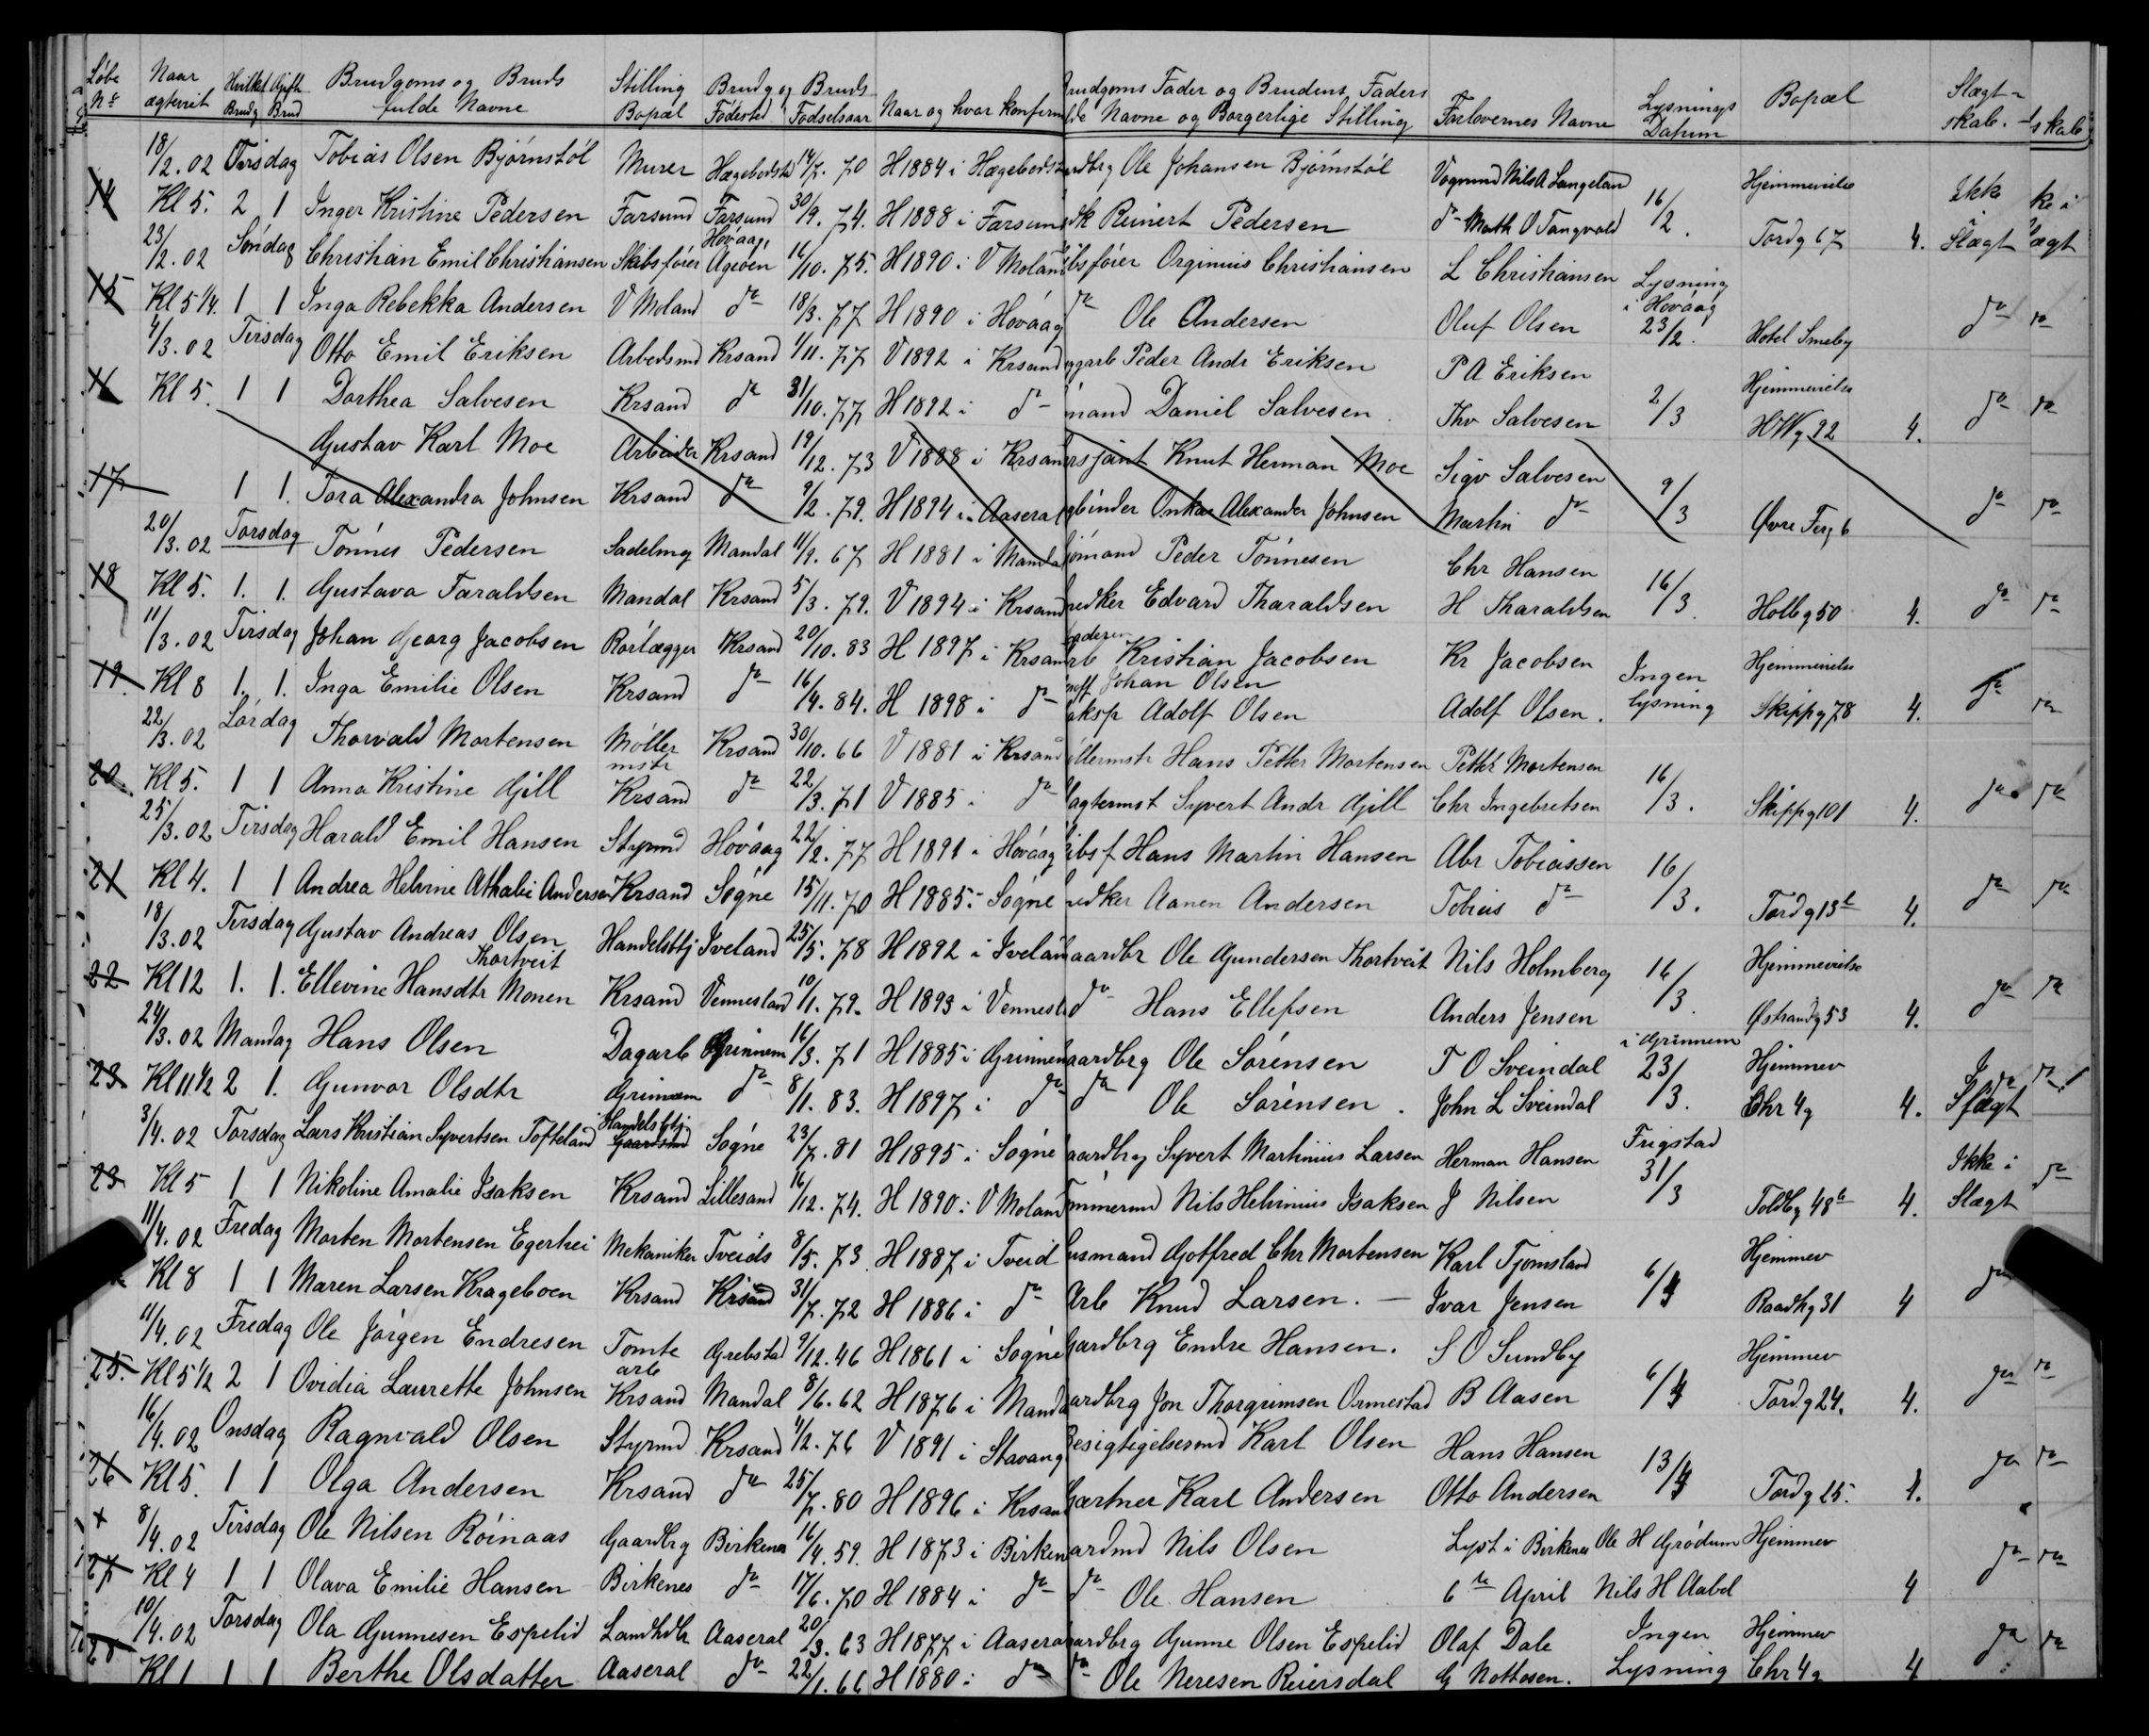 Løbe Nr Naar agtevixt Hvilket Gifte Brudg Brud Brudgoms og Bruds fulde Navne Stilling Bopæl Brudg og Bruds Fødested Fødselsaar Naar og hvor konfirm Brudgoms Fader og Brudens Faders Navne og Borgerlige Stilling Forlovernes Navne Lysnings Datum Bopæl Slægt- skab. skab
18/2.02 Tirsdag Tobias Olsen Bjørnstøl Murer Hægebostd 14/7.70 H 1884 i Hægebost Ole Johansen Bjørnstøl Vognmnd Nils A Langeland Hjemmevielse Ikke
14 Kl 5. 2 1 Inger Kristine Pedersen Farsund Farsund 30/9.74. H 1888 i Farsund Reinert Pedersen do Math O Tangvald 16/2. Tordg 67 4. Slægt
23/2.02 Søndag Christian Emil Christiansen Skibsfører Høvaag, Ageröen 16/10.75. H 1890 i V Moland Orginius Christiansen L Christiansen Lysning
15 Kl 5 1/4. 1 1 Inga Rebekka Andersen V Moland do 18/3.77 H 1890 i Høvaag do Ole Andersen Oluf Olsen i Høvaag 23/2. Hotel Smeby do do
4/3.02 Tirsdag Otto Emil Eriksen Arbedsmd Krsand 1/11.77 V 1892 i Krsand Peder Andr Eriksen P A Eriksen Hjemmevielse
16 Kl 5. 1 1 Dorthea Salvesen Krsand do 31/10.77 H 1892 i do Daniel Salvesen Thv Salvesen 2/3 HWg 92 4. do do
Gustav Karl Moe Arbeider Krsand 19/12.73 V 1888 i Krsand Knut Herman Moe Sigv Salvesen
17 1 1. Tora Alexandra Johnsen Krsand do 9/2.79. H 1894 i Aaseral Alexander Johnsen Martin do 9/3 Øvre Ferj 6 do do
20/3.02 Torsdag Tønnes Pedersen Sadelmg Mandal 11/9.67 H 1881 i Mandal Peder Tønnesen Chr Hansen
18 Kl 5. 1. 1. Gustava Taraldsen Mandal Krsand 5/3.79. V 1894 i Krsand Edvard Tharaldsen H Tharaldsen 16/3. Holbg 50 4. do do
11/3.02 Tirsdag Johan Georg Jacobsen Rørlægger Krsand 20/10.83 H 1897 i Krsand Kristian Jacobsen Kr Jacobsen Ingen Hjemmevielse
19. Kl 8 1. 1. Inga Emilie Olsen Krsand do 16/4.84. H 1898 i do Johan Olsen Adolf Olsen Adolf Olsen. Lysning Skippg 78 4. do do
22/3.02 Lørdag Thorvald Mortensen Møller mstr Krsand 30/10.66 V 1881 i Krsand Hans Petter Mortensen Petter Mortensen
20. Kl 5. 1 1 Anna Kristine Gill Krsand do 22/3.71 V 1885 i do Syvert Andr Gill Chr Ingebretsen 16/3. Skippg 101 4. do do
25/3.02 Tirsdag Harald Emil Hansen Styrmd Høvaag 22/2.77 H 1891 i Høvaag Hans Martin Hansen Abr Tobiassen
21 Kl 4. 1 1 Andrea Helvine Athalie Andersen Krsand Søgne 15/11.70 H 1885 i Søgne Aanen Andersen Tobias do 16/3. Tordg 13 4. do do
18/3.02 Tirsdag Gustav Andreas Olsen Thortveit Handelsbtj Iveland 25/5.78 H 1892 i Iveland Ole Gundersen Thortveit Nils Holmberg Hjemmevielse
22 Kl 12 1. 1. Ellevine Hansdtr Monen Krsand Vennesland 10/1.79. H 1893 i Vennesl do Hans Ellefsen Anders Jensen 16/3. Østrandg 53 4. do do
24/3.02 Mandag Hans Olsen Dagarb Grinnem 16/3.71 H 1885 i Grinnem Ole Sørensen T O Sveindal i Grinnem Hjemmev
23 Kl 11 1/2 2 1. Gunvor Olsdtr Grimnem do 8/1.83. H 1897 i do do Ole Sørensen. John L Sveindal 23/3. Chr 4g 4. Slægt
3/4.02 Torsdag Lars Kristian Syvertsen Tofteland Handelsbtj Søgne 23/7.81 H 1895 i Søgne Syvert Martinius Larsen Herman Hansen Frigstad Ikke i
23 Kl 5 1 1 Nikoline Amalie Isaksen Krsand Lillesand 16/12.74. H 1890 i V Moland Nils Helminius Isaksen J Nilsen 31/3 Toldbg 48 4. Slægt do
11/4.02 Fredag Morten Mortensen Egerhei Mekaniker Tveids 8/5.73. H 1887 i Tveid Gotfred Chr Mortensen Karl Tjomsland Hjemmev
Kl 8 1 1 Maren Larsen Krageboen Krsand Krsand 31/7.72 H 1886 i do Arb Knud Larsen. Ivar Jensen 6/4 Raadhg 31 4 do
11/4.02 Fredag Ole Jørgen Endresen Tomte arb Grebstad 9/12.46 H 1861 i Søgne Gaardbrg Endre Hansen. S O Sundby Hjemmev
25. Kl 5 1/2 2 1 Ovidia Laurette Johnsen Krsand Mandal 8/6.62 H 1876 i Mandal Jon Thorgrimsen Ormestad B Aasen 6/4 Tordg 24. 4. do do
16/4.02 Onsdag Ragnvald Olsen Styrmd Krsand 4/2.76 V 1891 i Stavang Besigtigelsesmd Karl Olsen Hans Hansen
26 Kl 5. 1 1 Olga Andersen Krsand do 25/7.80 H 1896 i Krsand Gartner Karl Andersen Otto Andersen 13/4 Tordg 25. 4. do do
8/4.02 Tirsdag Ole Nilsen Røinaas Gaardbrg Birkenes 16/4.59. H 1873 i Birken Nils Olsen Lyst i Birkenes Ole H Grødum Hjemmev
27 Kl 4 1 1 Olava Emilie Hansen Birkenes do 17/6.70 H 1884 i do do Ole Hansen 6te April Nils H Aabel 4 do do
10/4.02 Torsdag Ola Gunnesen Espelid Landhdlr Aaseral 20/3.63 H 1877 i Aaseral Gunne Olsen Espelid Olaf Dale Ingen Hjemmev
28 Kl 1 1 1 Berthe Olsdatter Aaseral do 22/1.66 H 1880 i do do Ole Neresen Reiersdal G Nottosen. Lysning Chr 4g 4 do do